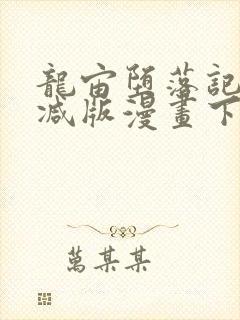 龍宙堕落記
减版漫畫下
萬某某